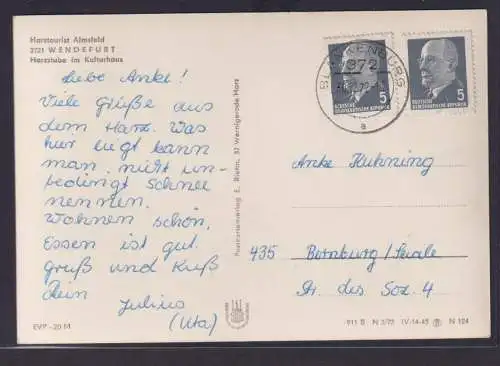 Harztourist Almsfeld
3721 WENDEFURT
Harzstube im Kulturhaus
Liebe Anke!
Viele Grüße aus
dem Harz. Was
hier liegt kann
man nicht un-
bedingt Schnee
nennen.
Wohnen schön,
Essen ist gut.
Gruß und Kuß
Dein Julius
(Uta)
EVP -20 M
Postkartenverlag E. Riehn, 37 Wernigerode Harz
BLANKENBURG
372
a
5
DEUTSCHE
DEMOKRATISCHE REPUBLIK
5
DEUTSCHE
DEMOKRATISCHE REPUBLIK
Anke Kuhning
435 Bernburg/Saale
Pl. des Soz. 4
911 B N 3/73 IV-14-45 N 124